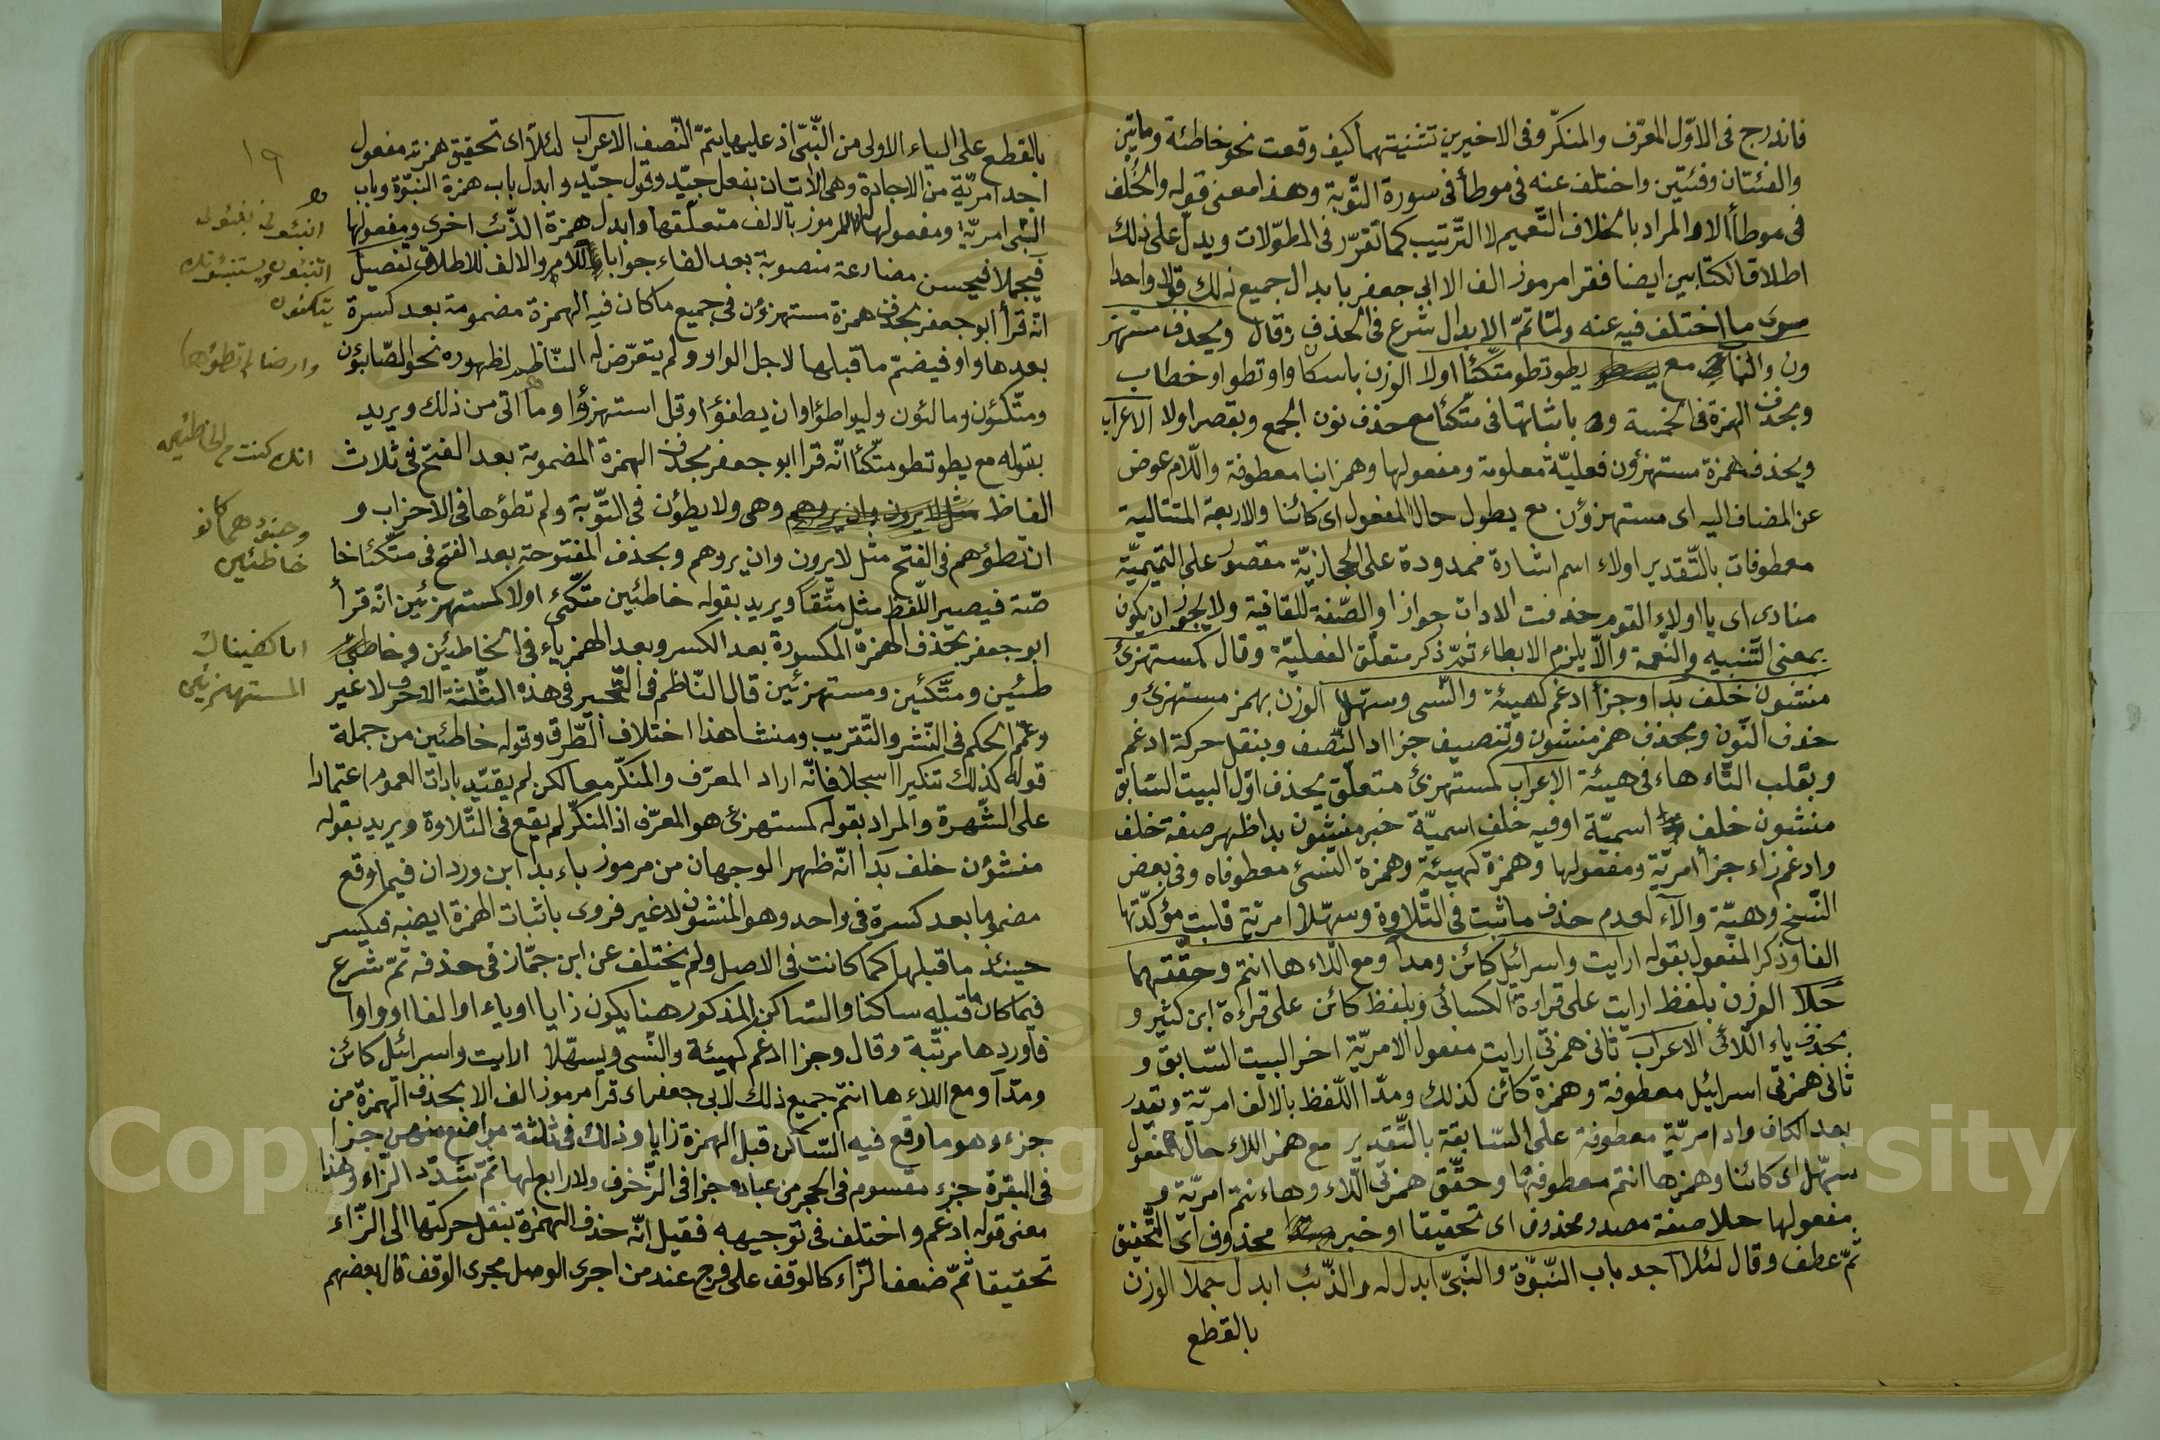 فاندرج فى الاوّل المعرّف والمنكّر وفى الاخيرين تثنيتهما كيف وقعت نحو خاطئة ومأتين
والفئتان وفئتين واختلف عنه فى موطأ فى سورة التّوبة وهذا معنى قوله والخُلف
فى موطأ الا المراد بالخلاف التّعميم لا التّرتيب كما تقرّر فى المطوّلات ويدلّ على ذلك
اطلاق الكتابين ايضا فقرا مرموز الف الا ابى جعفر بابدال جميع ذلك قولا واحدا
سوى ما اختلف فيه عنه ولمّا تمّ الابدال شرع فى الحذف وقال ويحذف مستهز
ون والباب مع يطو تطو متّكئا اولا الوزن باسكان واو تطو او خطاب
وبحذف الهمزة فى الخمسة و باثباتها فى متّكئا مع حذف نون الجمع وبقصر اولا الاعراب
ويحذف همزة مستهزؤن فعليّة معلومة ومفعولها وهمز انبا معطوفة واللّام عوض
عن المضاف اليه اى مستهزؤن مع يطول حال المفعول اى كائنا والاربعة المتتالية
معطوفات بالتّقدير اولاء اسم اشارة ممدودة على الحجازيّة مقصور على التّميميّة
منادى اى يا اولاء القوم حذفت الادات جوازا والصّفة للقافية ولا يجوز ان يكون
بمعنى التّنبيه والنّعمة والّا يلزم الايطاء ثمّ ذكر متعلّق الفعليّة وقال كمستهزئ
منشون خلف بدا وجزأ ادغم كهيئة والنّسى وسهّلا الوزن بهمز مستهزئ و
حذف النّون وبحذف همز منشون وتنصيف جزا اد النّصف وبنقل حركة ادغم
وبقلب التّاء هاء فى هيئة الاعراب كمستهزئ متعلّق يحذف اوّل البيت السّابق
منشون خلف اسميّة او فيه خلف اسميّة خبر منشون بدا ظهر صفة خلف
وادغم زاء جزأ امريّة ومفعولها وهمزة كهيئة وهمزة النسئ معطوفاه وفى بعض
النّسخ وهيّة والآء لعدم حذف ما ثبت فى التّلاوة وسهّلا امريّة قلبت مؤكدّتها
الفا وذكر المفعول بقوله ارايت واسرائيل كائن ومدا ومع اللّاء ها انتم وحقّقهما
حلا الوزن بلفظ ارايت على قراءة الكسائى وبلفظ كائن على قراءة ابن كثير و
بحذف ياء اللّائى الاعراب ثانى همزتى ارايت مفعول الامريّة اخر البيت السّابق و
ثانى همزتى اسرائيل معطوفة وهمزة كائن كذلك ومدّا اللّفظ بالالف امريّة وتقدر
بعد الكاف واد امريّة معطوفة على السّابقة بالتّقدير مع همز اللاء حال المفعول
سهّل اى كائنا وهمزها انتم معطوفها وحقّق همزتى اللّاء وهاء نتم امريّة و
مفعولها حلا صفة مصدر محذوف اى تحقيقا او خبر محذوف اى التّحقيق
ثمّ عطف وقال لئلا اجد باب النّبوّة والنّبىّ ابدل له والذّئب ابدل جملا الوزن
بالقطع
بالقطع على الياء الاولى من النّبىّ اذ عليها يتمّ النّصف الاعراب لئلّا اى تحقيق همزته مفعول
اجد امريّة من الاجادة وهى الاتيان بفعل جيّد وقول جيّد وابدل باب همزة النبوّة وباب
النبى امريّة ومفعولها له المرموز بالالف متعلّقها وابدل همزة الذّئب اخرى ومفعولها
فيجملا فيحسن مضارعة منصوبة بعد الفاء جوابا للامر والالف للاطلاق تفصيل
انّه قرأ ابو جعفر بحذف همزة مستهزؤن فى جميع ما كان فيه الهمزة مضمومة بعد كسرة
بعدها واو فيضمّ ما قبلها لاجل الواو ولم يتعرّض له النّاظم لظهوره نحو الصّابؤن
ومتّكؤن ومالئون وليواطؤا وان يطفؤا وقل استهزؤا وما اتى من ذلك ويريد
بقوله مع يطو تطو متّكئا انّه قرا ابو جعفر بحذف الهمزة المضمومة بعد الفتح فى ثلاث
الفاظ وهى ولا يطؤن فى التّوبة ولم تطؤها فى الاحزاب و
ان تطؤهم فى الفتح مثل لا يرون وان يروهم وبحذف المفتوحة بعد الفتح فى متّكئا خا
صّة فيصير اللّفظ مثل متّقا ويريد بقوله خاطئين متّكئ اولا كمستهزئين انّه قرأ
ابو جعفر بحذف الهمزة المكسورة بعد الكسر وبعد الهمز ياء فى الخاطئين وخا
طئين ومتّكئين ومستهزئين قال النّاظم فى التّحبير فى هذه الثّلثة الاحرف لا غير
وعمّم الحكم فى النّشر والتّقريب ومنشا هذا اختلاف الطّرق وقوله خاطئين من جملة
قوله كذلك تنكيرا اسجلا فانّه اراد المعرّف والمنكّر معا لكن لم يقيّد بادات العموم اعتمادا
على الشّهرة والمراد بقوله كمستهزئ هو المعرّف اذ المنكّر لم يقع فى التّلاوة ويريد بقوله
منشؤن خلف بدا انّه ظهر الوجهان من مرموز باء بدا ابن وردان فيما وقع
مضموما بعد كسرة فى واحد وهو المنشون لا غير فروى باثبات الهمزة ايضه فيكسر
حينئذ ما قبلها كما كانت فى الاصل ولم يختلف عن ابن جمّاز فى حذفه ثمّ شرع
فيما كان ما قبله ساكنا والسّاكن المذكور هنا يكون زايا او ياء او الفا او واوا
فاوردها مرتّبة وقال وجزا ادغم كهيئة والنّسى وسهّلا ارايت واسرائل كائن
ومدّا ومع اللاء ها انتم جميع ذلك لابى جعفر اى قرا مرموز الف الا بحذف الهمزة من
جزء وهو ما وقع فيه السّاكن قبل الهمزة زايا وذلك فى ثلثة مواضع منهن جزأ
فى البقرة جزء مقسوم فى الحجر من عباده جزا فى الزّخرف ولا رابع لها ثمّ تشدّد الزّاء وهذا
معنى قوله ادغم واختلف فى توجيهه فقيل انّه حذف الهمزة بنقل حركتها الى الزّاء
تحقيقا ثمّ ضعف الزّاء كالوقف على فرج عند من اجرى الوصل مجرى الوقف قال بعضهم
١٩
انبئونى
اتنبئون ويستنبئونك
يتكئون
وارضا لم تطؤها
انك كنت من الخاطئين
وجنودهما كانوا
خاطئين
انا كفيناك
المستهزئين
Copyright © King Saud University